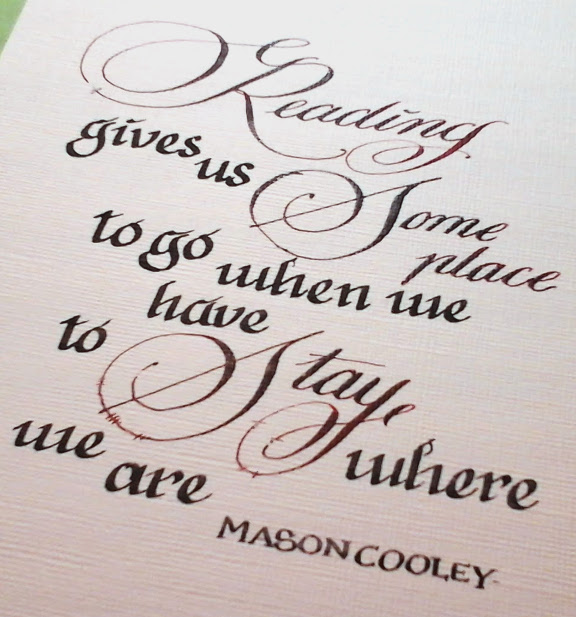 Reading
gives us Some place
to go when we
have
to Stay where
we are
MASON COOLEY